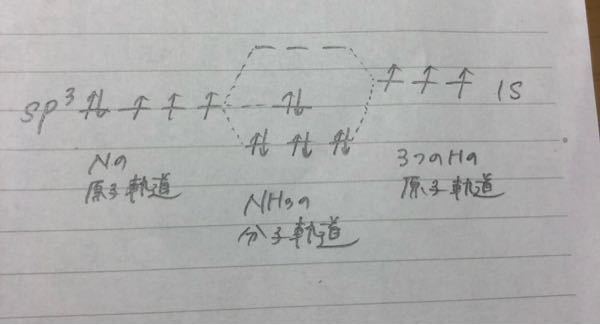 sp³ ⇅ ↑ ↑ ↑
⇅
⇅ ⇅ ⇅
↑ ↑ ↑ 1S
Nの
原子軌道
NH3の
分子軌道
3つのHの
原子軌道